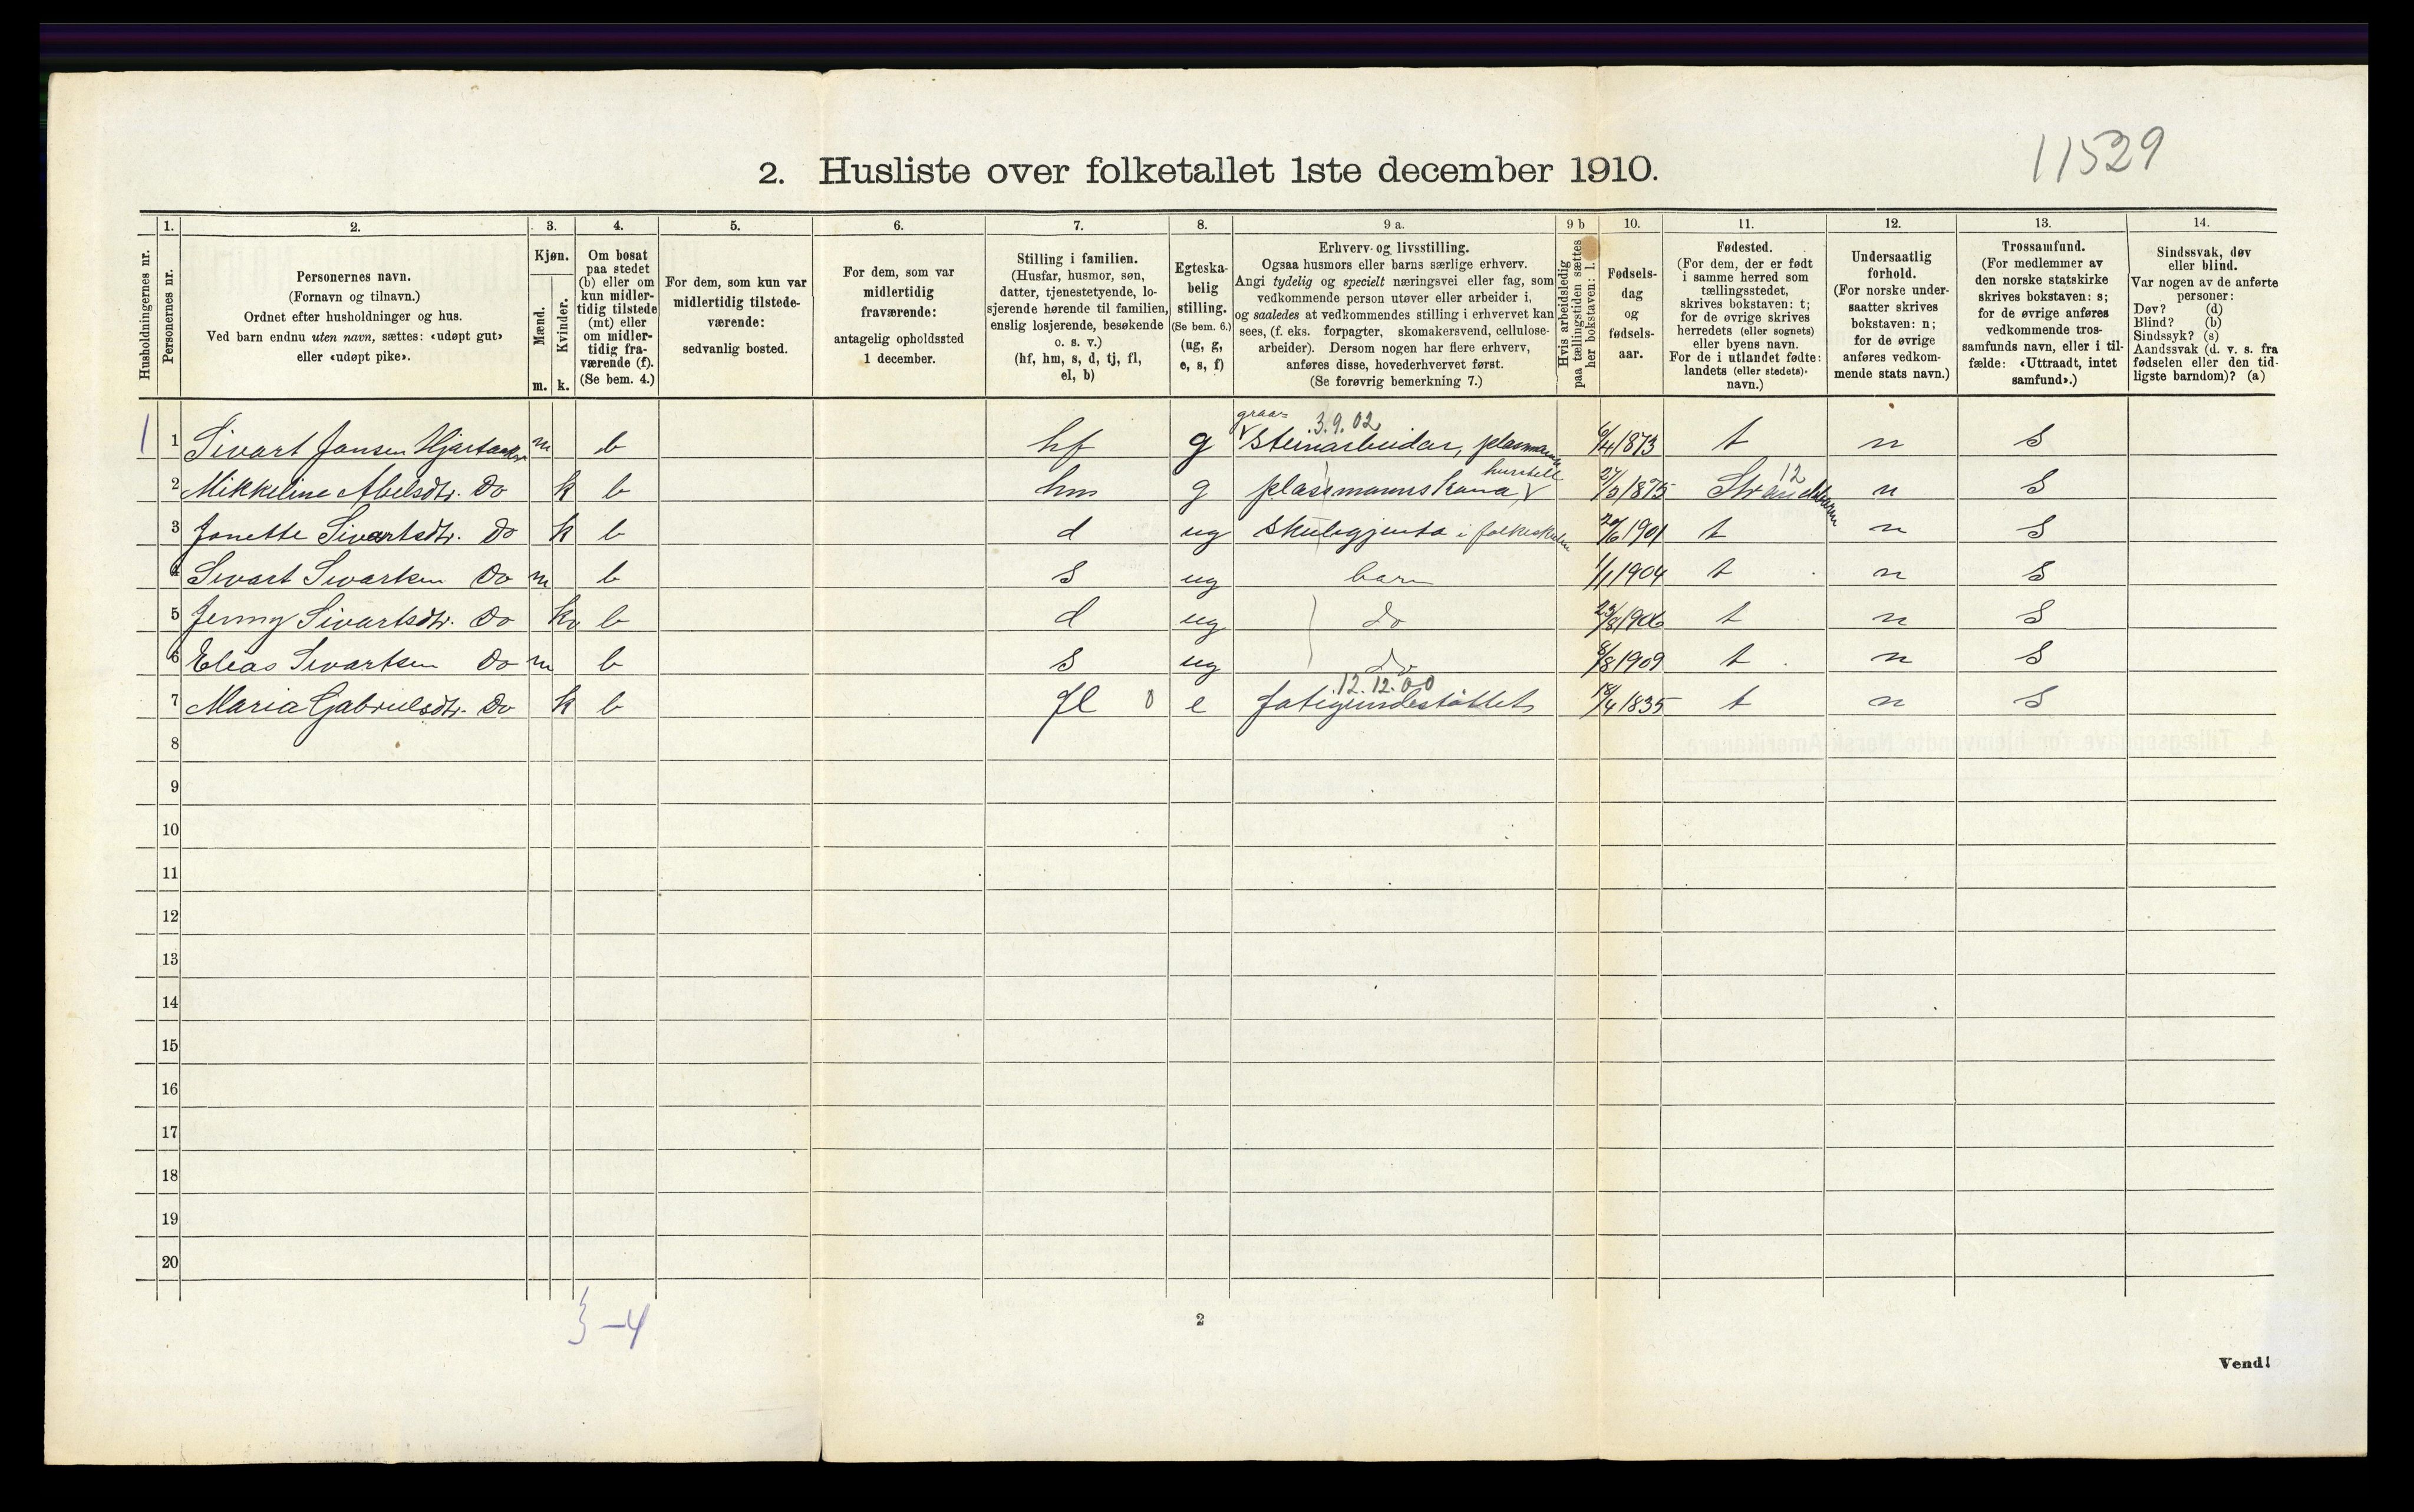 11529
2. Husliste over folketallet 1ste december 1910.
Husholdningernes nr.
1.
Personernes nr.
2.
Personernes navn.
(Fornavn og tilnavn.)
Ordnet efter husholdninger og hus.
Ved barn endnu uten navn, sættes: «udøpt gut»
eller «udøpt pike».
3.
Kjøn.
Mænd.
Kvinder.
m. k.
4.
Om bosat
paa stedet
(b) eller om
kun midler-
tidig tilstede
(mt) eller
om midler-
tidig fra-
værende (f).
(Se bem. 4.)
5.
For dem, som kun var
midlertidig tilstede-
værende:
sedvanlig bosted.
6.
For dem, som var
midlertidig
fraværende:
antagelig opholdssted
1 december.
7.
Stilling i familien.
(Husfar, husmor, søn,
datter, tjenestetyende, lo-
sjerende hørende til familien,
enslig losjerende, besøkende
o. s. v.)
(hf, hm, s, d, tj, fl,
el, b)
8.
Egteska-
belig
stilling.
(Se bem. 6.)
(ug, g,
e, s, f)
9 a.
Erhverv og livsstilling.
Ogsaa husmors eller barns særlige erhverv.
Angi tydelig og specielt næringsvei eller fag, som
vedkommende person utøver eller arbeider i,
og saaledes at vedkommendes stilling i erhvervet kan
sees, (f. eks. forpagter, skomakersvend, cellulose-
arbeider). Dersom nogen har flere erhverv,
anføres disse, hovederhvervet først.
(Se forøvrig bemerkning 7.)
9 b
Hvis arbeidsledig
paa tællingstiden sættes
her bokstaven: l.
10.
Fødsels-
dag
og
fødsels-
aar.
11.
Fødested.
(For dem, der er født
i samme herred som
tællingsstedet,
skrives bokstaven: t;
for de øvrige skrives
herredets (eller sognets)
eller byens navn.
For de i utlandet fødte:
landets (eller stedets)
navn.)
12.
Undersaatlig
forhold.
(For norske under-
saatter skrives
bokstaven: n;
for de øvrige
anføres vedkom-
mende stats navn.)
13.
Trossamfund.
(For medlemmer av
den norske statskirke
skrives bokstaven: s;
for de øvrige anføres
vedkommende tros-
samfunds navn, eller i til-
fælde: «Uttraadt, intet
samfund».)
14.
Sindssvak, døv
eller blind.
Var nogen av de anførte
personer:
Døv? (d)
Blind? (b)
Sindssyk? (s)
Aandssvak (d. v. s. fra
fødselen eller den tid-
ligste barndom)? (a)
graa= 3.9.02
1 1 Sivart Jansen m b hf g Steinarbeidar, plassmann 6/4 1873 t n S
husstell 12
2 Mikkeline Abelsdtr. Do k b hm g plassmannskona 27/3 1875 Strandebarm n S
3 Jonette Sivartsdtr. Do k b d ug Skulegjenta i folkeskulen 20/6 1901 t n S
4 Sivart Sivartsen Do m b S ug barn 1/1 1904 t n S
5 Jenny Sivartsdtr. Do k b d ug do 23/8 1906 t n S
6 Elias Sivartsen Do m b S ug do 6/8 1909 t n S
12.12.00
7 Maria Gabrielsdtr. Do k b fl 0 e fatigundestøttet 18/4 1835 t n S
8
9
10
11
12
13
14
15
16
17
18
19
20
3-4
2
Vend!